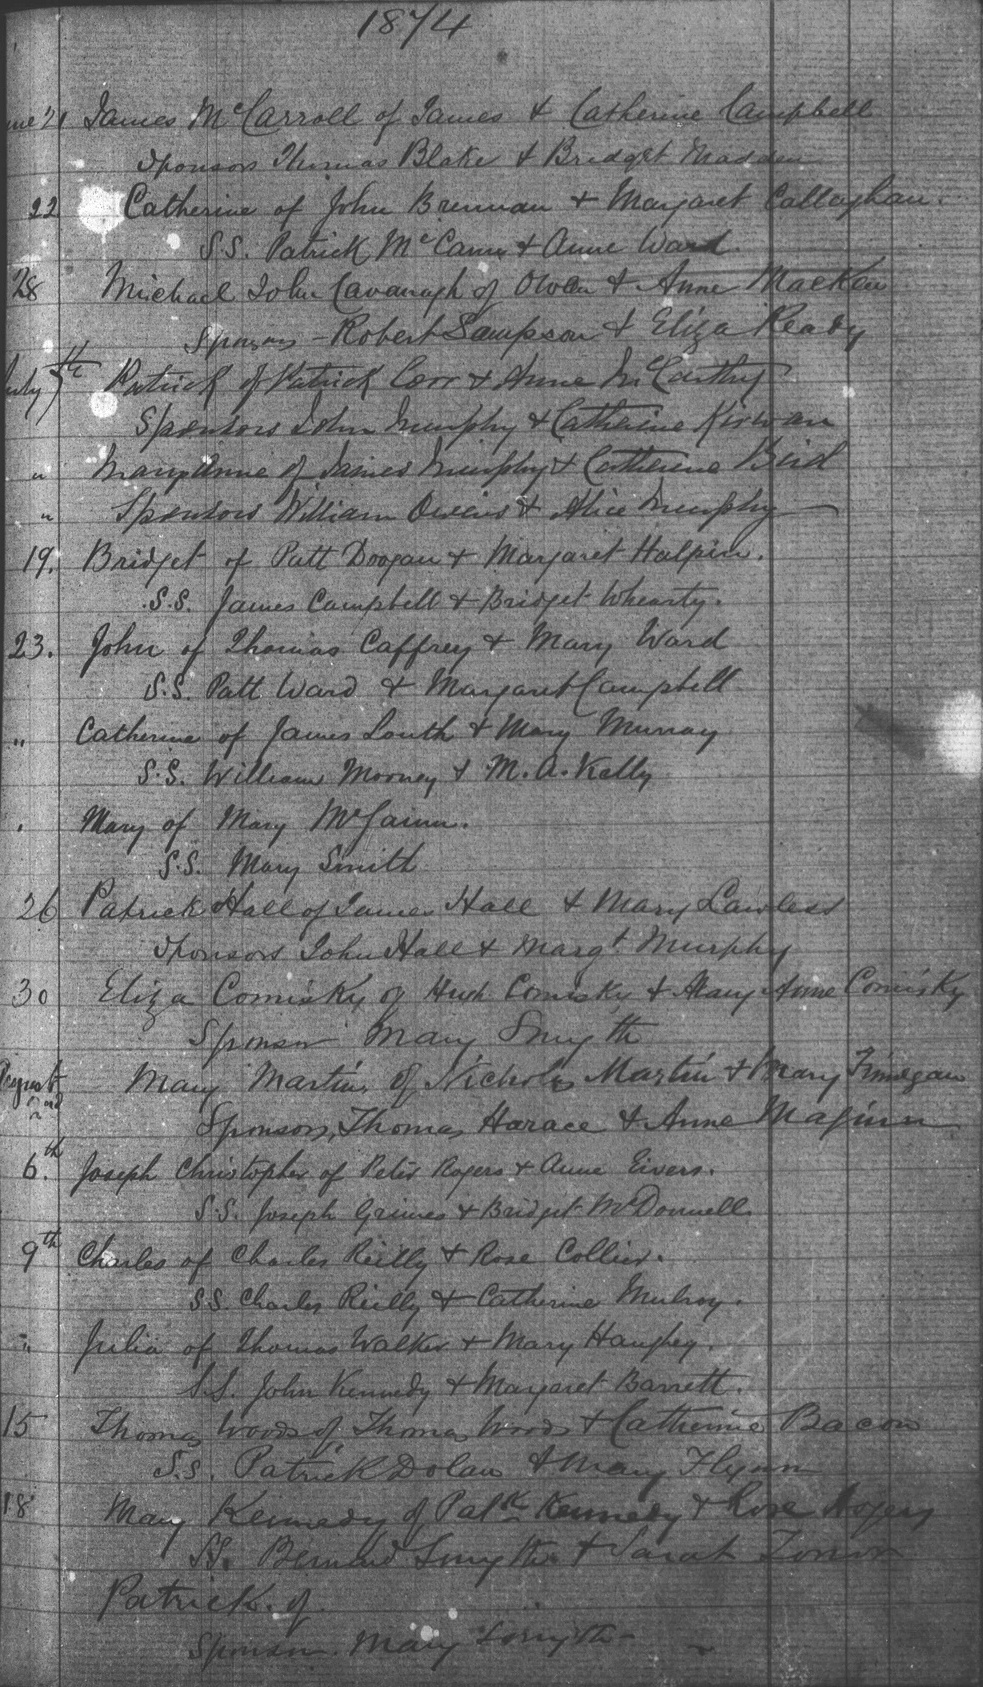 1874
June 21 James McCarroll of James & Catherine Campbell
Sponsors Thomas Blake & Bridget Madden
22 Catherine of John Brennan & Margaret Callaghan.
S.S. Patrick McCann & Anne Ward
28 Michael John Cavanagh of Owen & Anne Macken
Sponsors - Robert Sampson & Eliza Ready
July 7th Patrick of Patrick Corr & Anne McCarthy
Sponsors John Murphy & Catherine Kirwan
" Mary Anne of James Murphy & Catherine Bird
" Sponsors William Owens & Alice Murphy
19. Bridget of Patt Doogan & Margaret Halpin.
S.S. James Campbell & Bridget Whearty.
23. John of Thomas Caffrey & Mary Ward
S.S. Patt Ward & Margaret Campbell
" Catherine of James Louth & Mary Murray
S.S. William Mooney & M. A. Kelly
Mary of Mary
S.S. Mary Smith
26 Patrick Hall of James Hall & Mary Lawless
Sponsors John Hall & Margt Murphy
30 Eliza Comisky of Hugh Comisky & Mary Anne Comisky
Sponsor Mary Smyth
August 2nd Mary Martin of Nicholas Martin & Mary Finnegan
Sponsors, Thomas Harace & Anne Maginn
6.th Joseph Christopher of Peter Rogers & Anne Eivers.
S.S. Joseph Grimes & Bridget McDonnell
9th Charles of Charles Reilly & Rose Collier.
S.S. Charles Reilly & Catherine Mulroy.
" Julia of Thomas Walker & Mary Haughey.
S.S. John Kennedy & Margaret Barrett.
15 Thomas Woods of Thomas Woods & Catherine Bacon
S.S. Patrick Dolan & Mary Flynn
18 Mary Kennedy of Patk Kennedy & Rose Rogers
SS. Bernard Smyth & Sarah
Patrick of
Sponsor. Mary Smyth